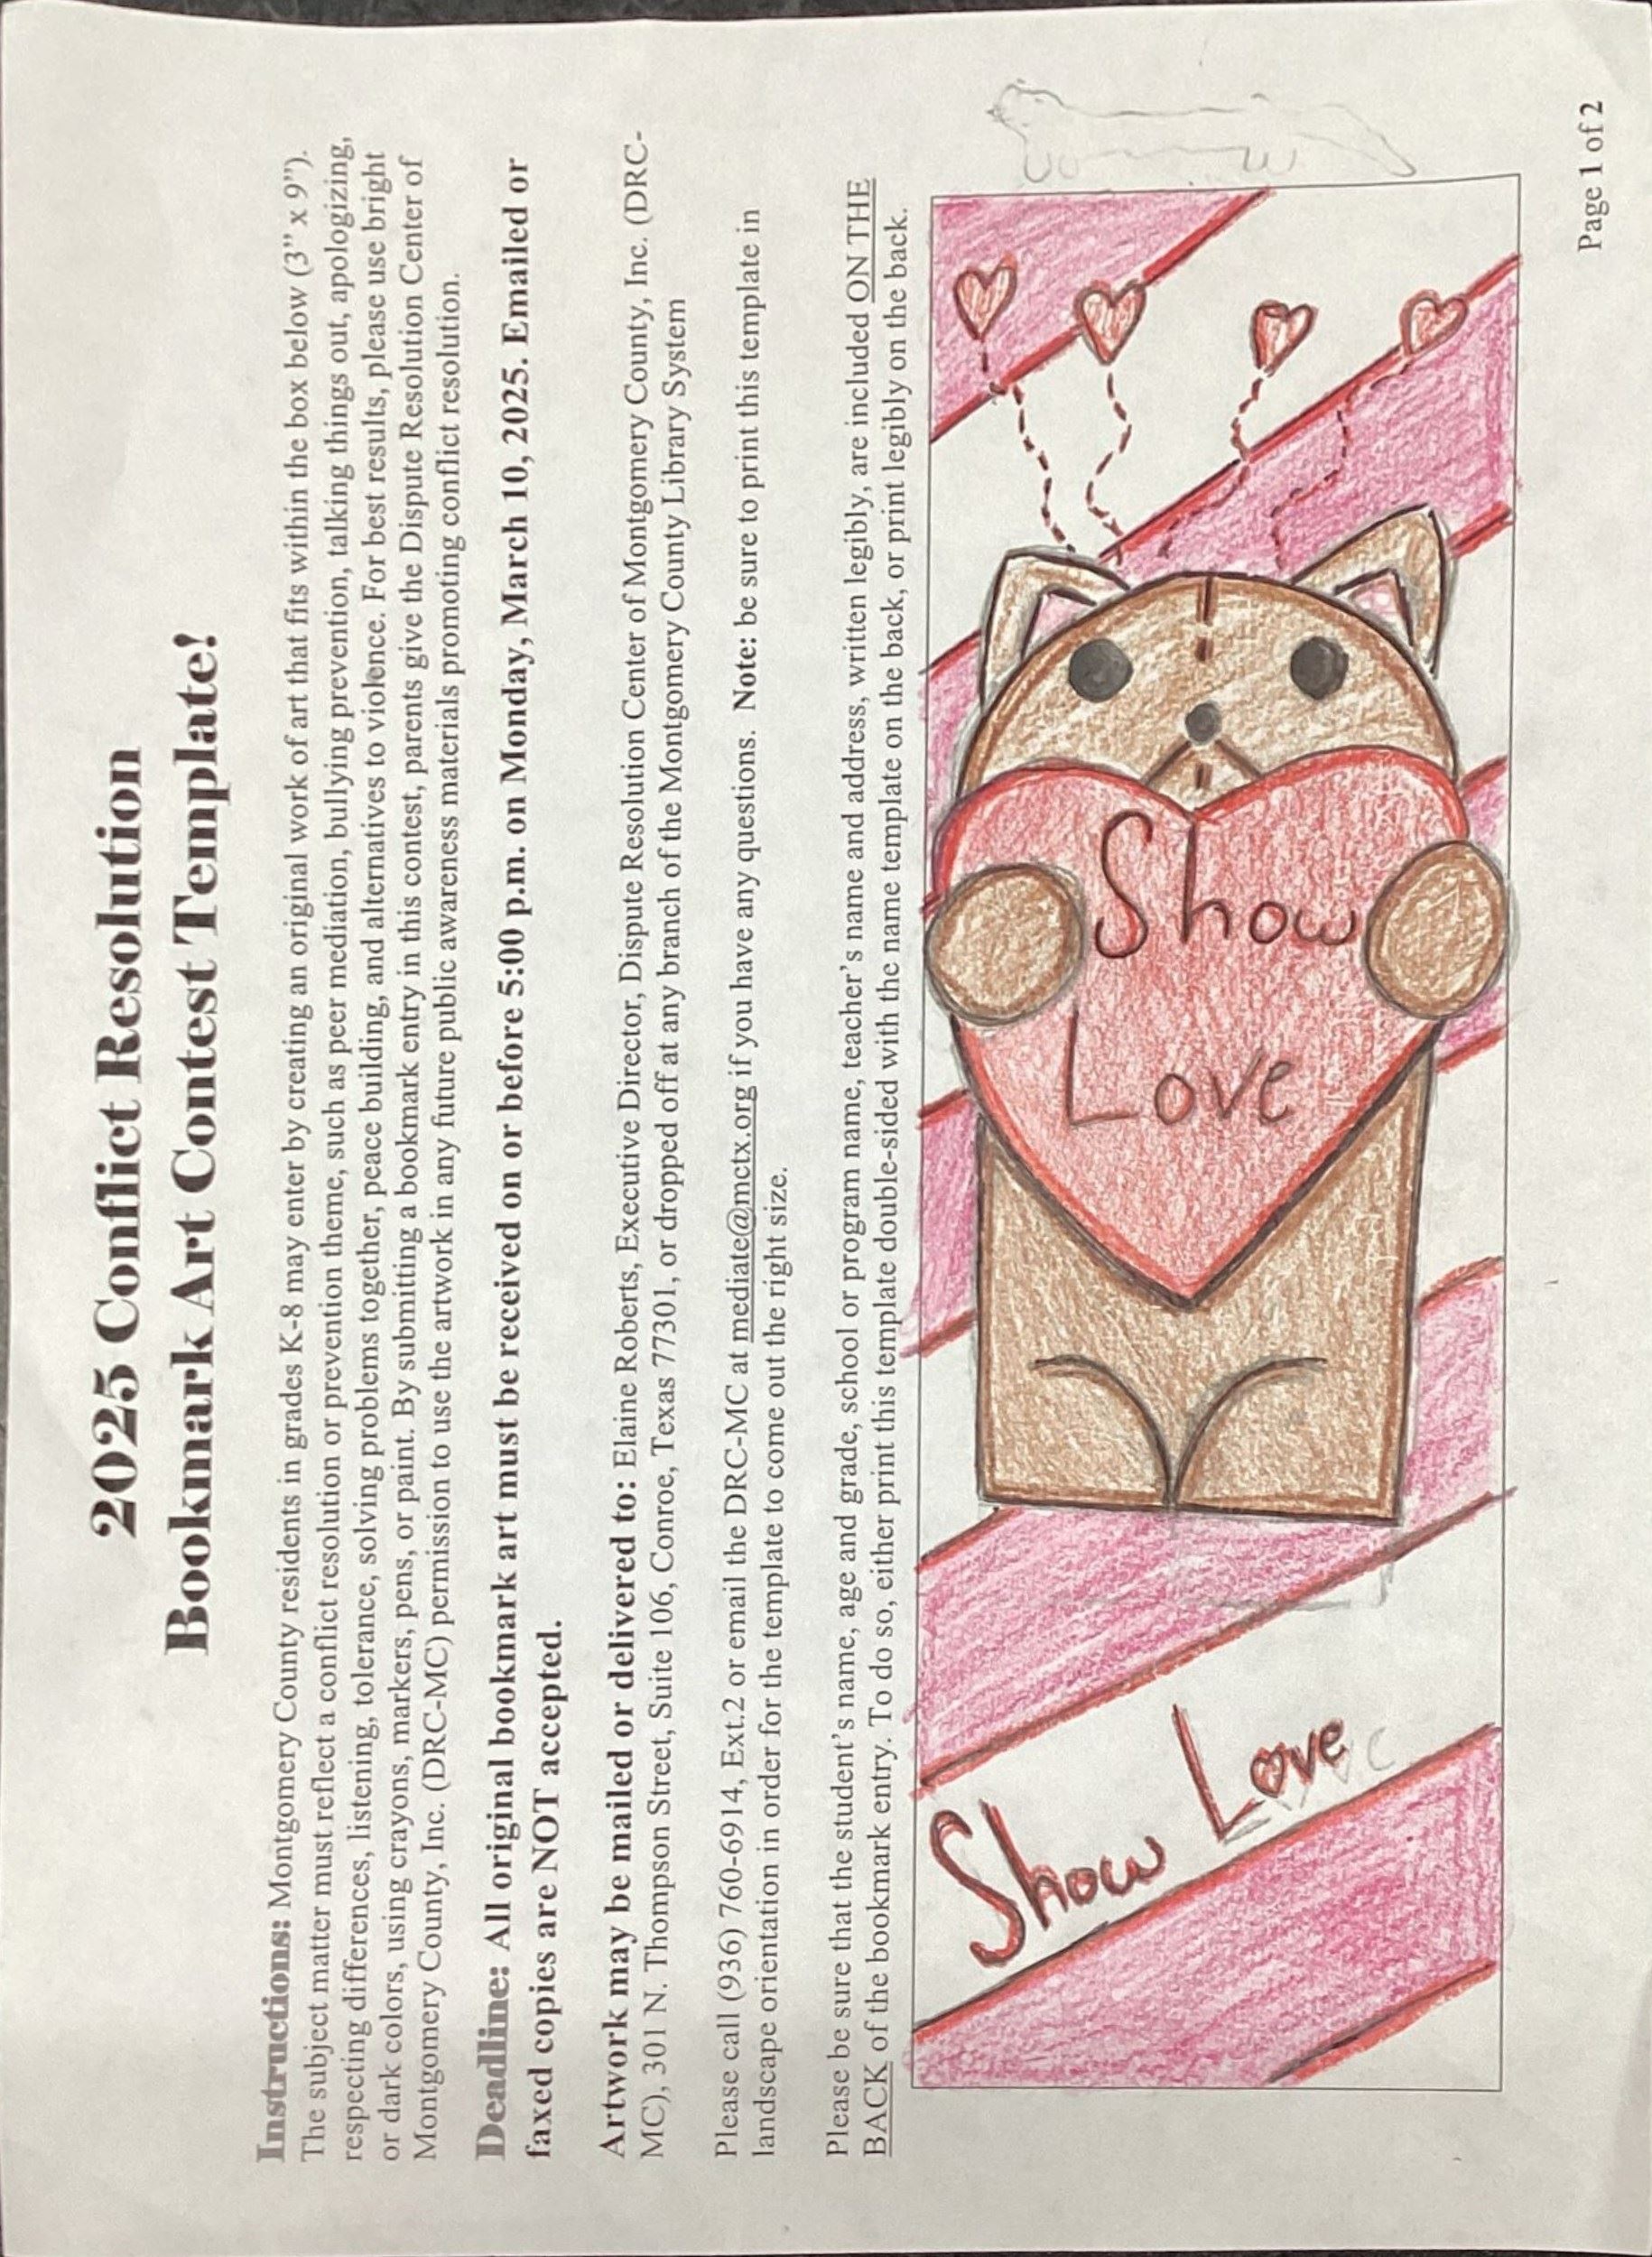 2025 Conflict Resolution
Bookmark Art Contest Template!
Instructions: Montgomery County residents in grades K-8 may enter by creating an original work of art that fits within the box below (3” x 9”).
The subject matter must reflect a conflict resolution or prevention theme, such as peer mediation, bullying prevention, talking things out, apologizing,
respecting differences, listening, tolerance, solving problems together, peace building, and alternatives to violence. For best results, please use bright
or dark colors, using crayons, markers, pens, or paint. By submitting a bookmark entry in this contest, parents give the Dispute Resolution Center of
Montgomery County, Inc. (DRC-MC) permission to use the artwork in any future public awareness materials promoting conflict resolution.
Deadline: All original bookmark art must be received on or before 5:00 p.m. on Monday, March 10, 2025. Emailed or
faxed copies are NOT accepted.
Artwork may be mailed or delivered to: Elaine Roberts, Executive Director, Dispute Resolution Center of Montgomery County, Inc. (DRC-
MC), 301 N. Thompson Street, Suite 106, Conroe, Texas 77301, or dropped off at any branch of the Montgomery County Library System
Please call (936) 760-6914, Ext.2 or email the DRC-MC at mediate@mctx.org if you have any questions. Note: be sure to print this template in
landscape orientation in order for the template to come out the right size.
Please be sure that the student’s name, age and grade, school or program name, teacher’s name and address, written legibly, are included ON THE
BACK of the bookmark entry. To do so, either print this template double-sided with the name template on the back, or print legibly on the back.
Show Love
Show
Love
Page 1 of 2